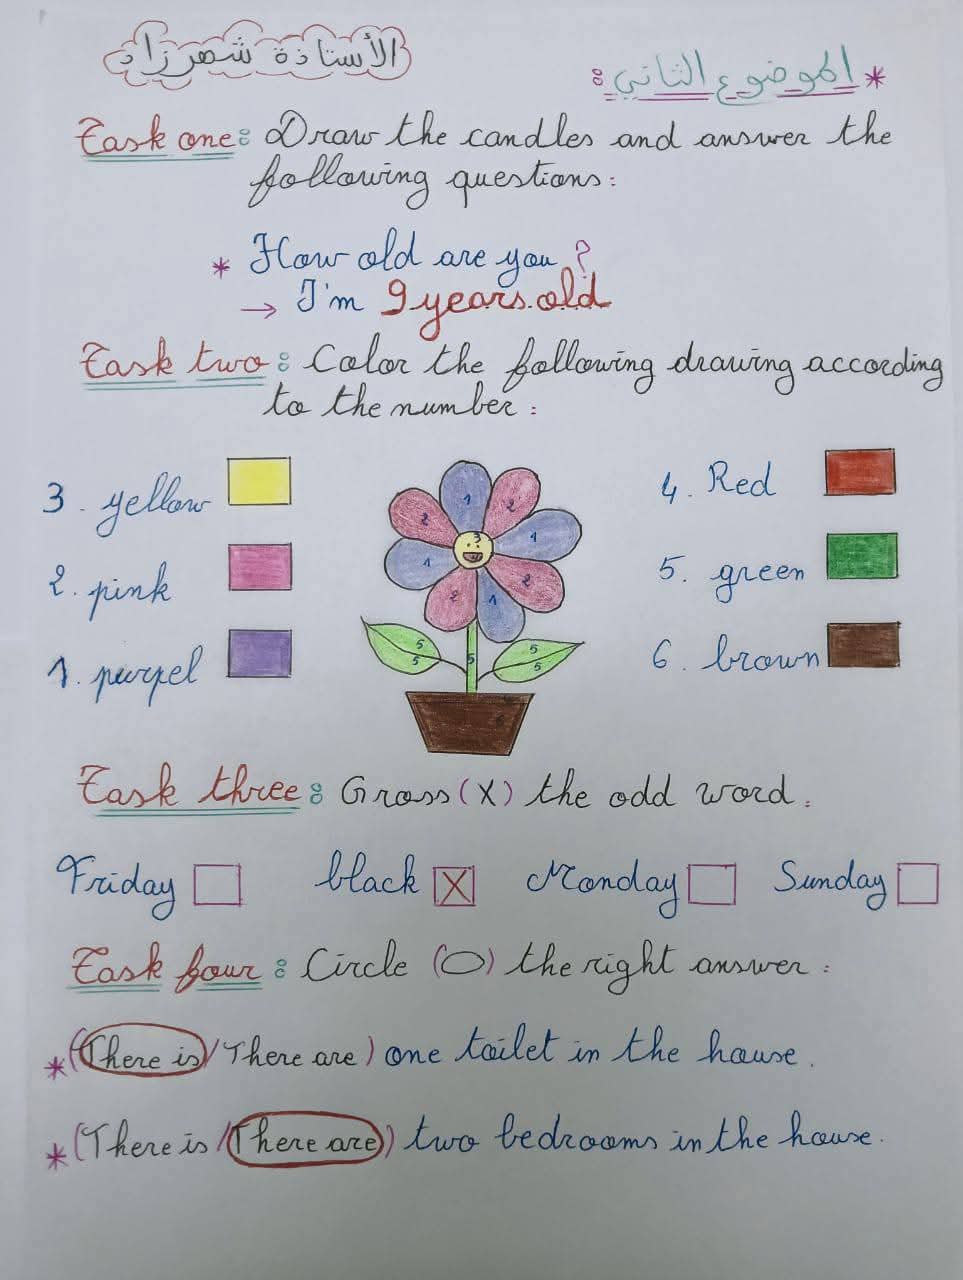 الأستاذة شهرزاد
* الموضوع الثاني :
Task one : Draw the candles and answer the
following questions :
* How old are you ?
→ I'm 9 years old
Task two : Color the following drawing according
to the number :
3 . yellow
2 . pink
1 . purpel
4 . Red
5 . green
6 . brown
1
2
2
1
3
1
2
2
1
5
5
5
5
5
6
6
Task three : Gross (X) the odd word .
Friday black X Monday Sunday
Task four : Circle (O) the right answer :
* (There is / There are) one toilet in the house .
* (There is / There are) two bedrooms in the house .